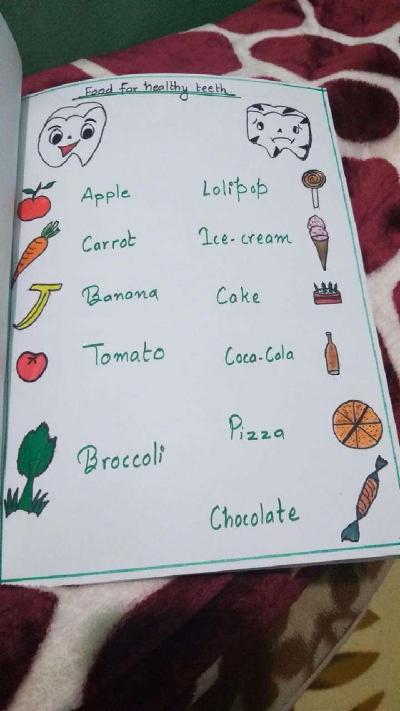 Food for healthy teeth
Apple
Lolipop
Carrot
Ice-cream
Banana
Cake
Tomato
Coca-Cola
Pizza
Broccoli
Chocolate